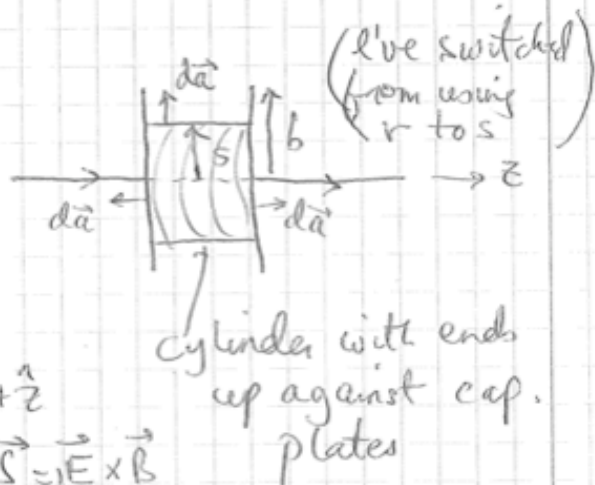 (I've switched
from using
r to s)
da⃗
s
b
z
da⃗
da⃗
cylinder with ends
up against cap.
plates
+ẑ
S⃗ = E⃗ × B⃗